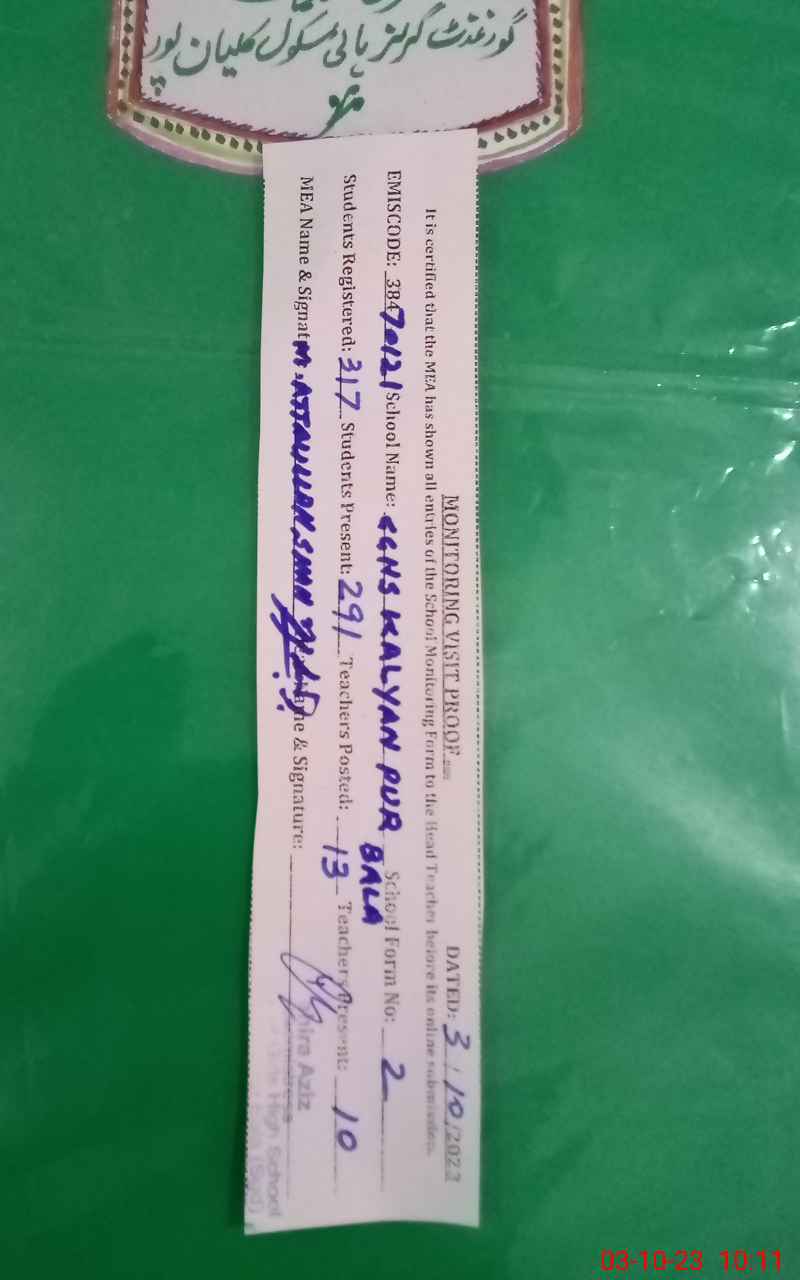 گورنمنٹ گرلز ہائی سکول کلیان پور
MONITORING VISIT PROOF
DATED: 3/10/2023
It is certified that the MEA has shown all entries of the School Monitoring Form to the Head Teacher before its online submission.
EMISCODE: 38470121 School Name: GGHS KALYAN PUR BALA School Form No: 2
Students Registered: 317 Students Present: 291 Teachers Posted: 13 Teachers Present: 10
MEA Name & Signat M. ATTAULLAH me & Signature:
hira Aziz
High School
03-10-23 10:11